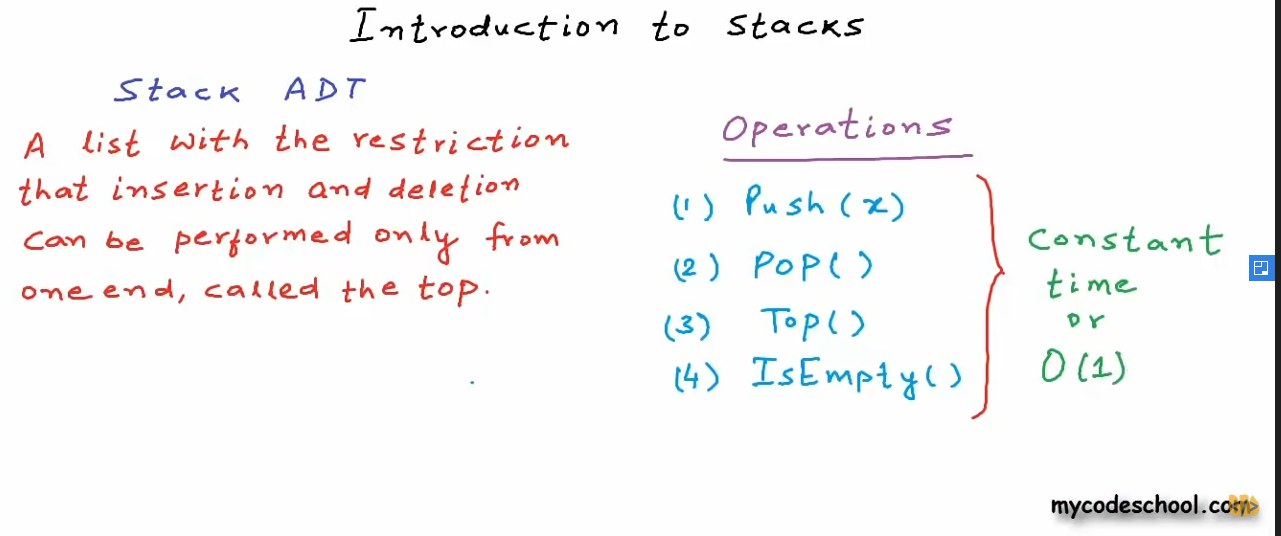 Introduction to stacks
Stack ADT
A list with the restriction
that insertion and deletion
can be performed only from
one end, called the top.
Operations
(1) Push(x)
(2) Pop()
(3) Top()
(4) IsEmpty()
Constant
time
or
O(1)
mycodeschool.com